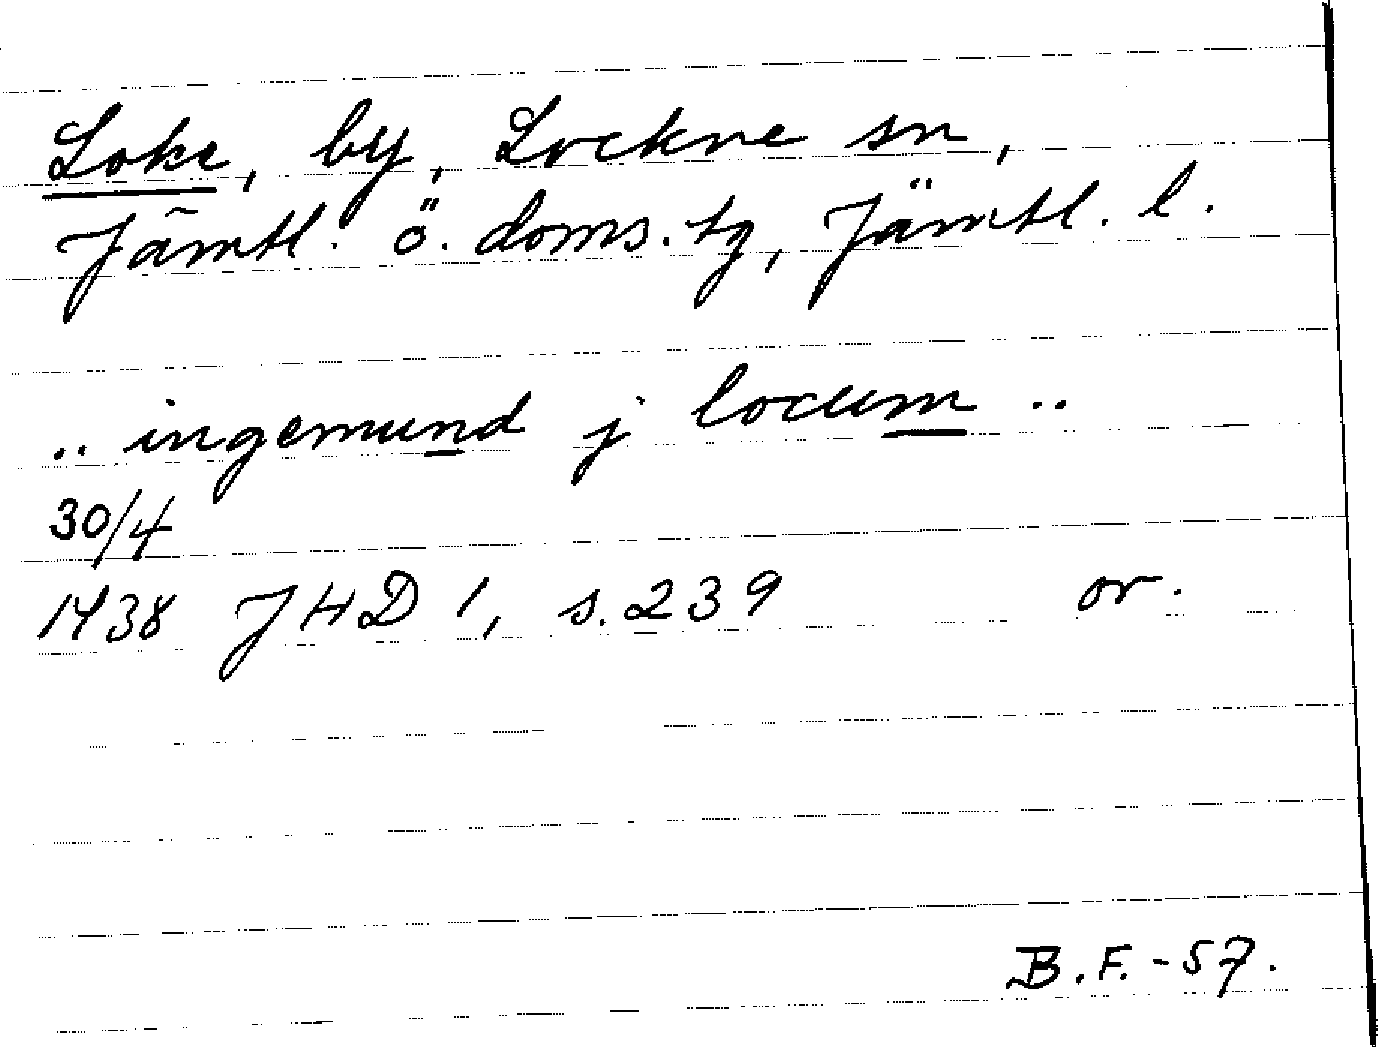 Loke, by, Lockne sn,
Jämtl. ö. doms. tg, Jämtl. l.
.. ingemund j locum ..
30/4
1438 JHD 1, s. 239 or.
B.F.-57.